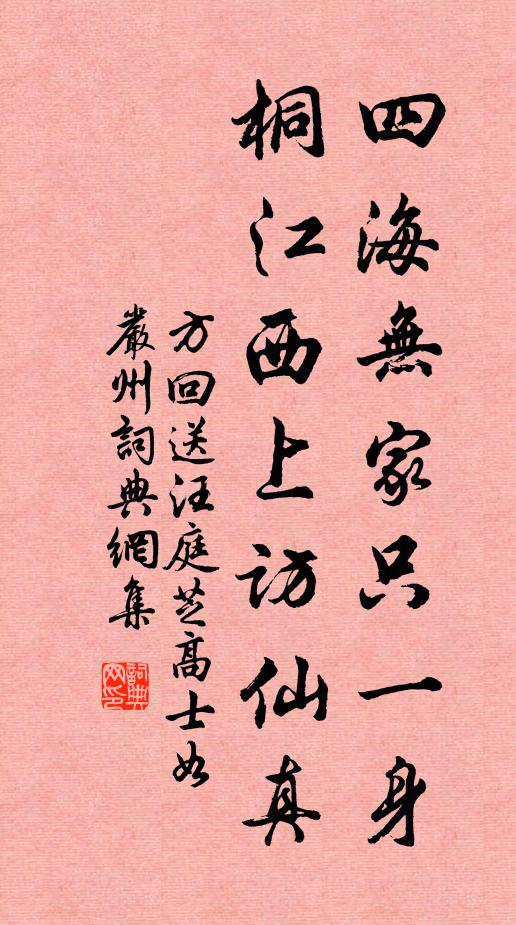 四海無家只一身
桐江西上訪仙真
方回送汪庭芝高士如
嚴州詞典網集
詞典网印